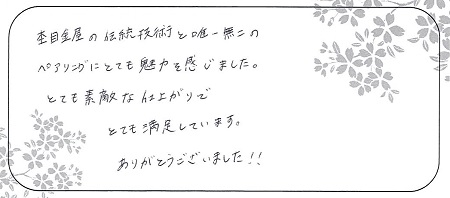 杢目金屋の伝統技術と唯一無二の
ペアリングにとても魅力を感じました。
とても素敵な仕上がりで
とても満足しています。
ありがとうございました!!